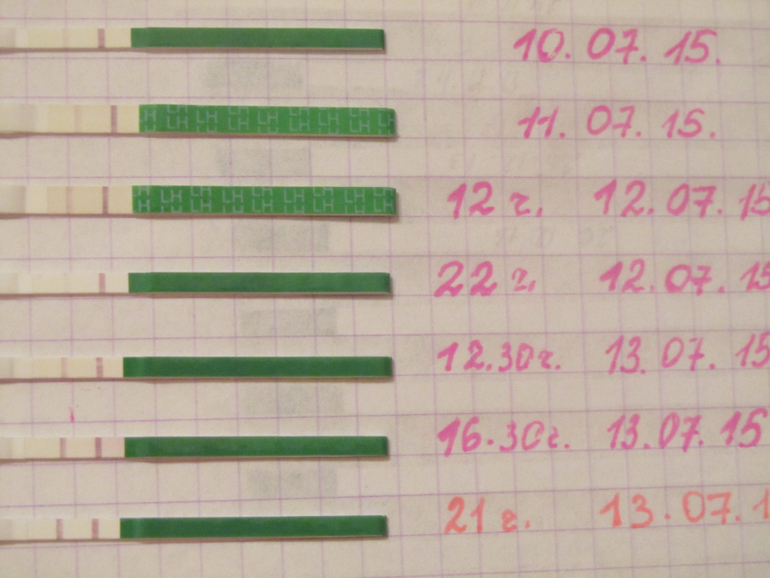 10.07.15.
11.07.15.
LH LH LH LH LH LH LH LH
12 г. 12.07.15
LH LH LH LH LH LH LH LH
22 г. 12.07.15
12.30г. 13.07.15
16.30г. 13.07.15
21 г. 13.07.1